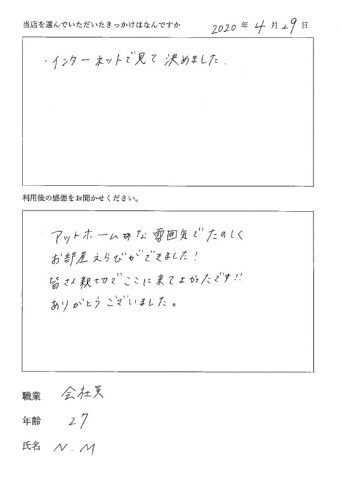 当店を選んでいただいたきっかけはなんですか 2020 年 4 月 29 日
・インターネットで見て決めました.
利用後の感想をお聞かせください。
アットホームな雰囲気でたのしく
お部屋えらびができました!
皆さん親切でここに来てよかったです!!
ありがとうございました。
職業 会社員
年齢 27
氏名 N.M